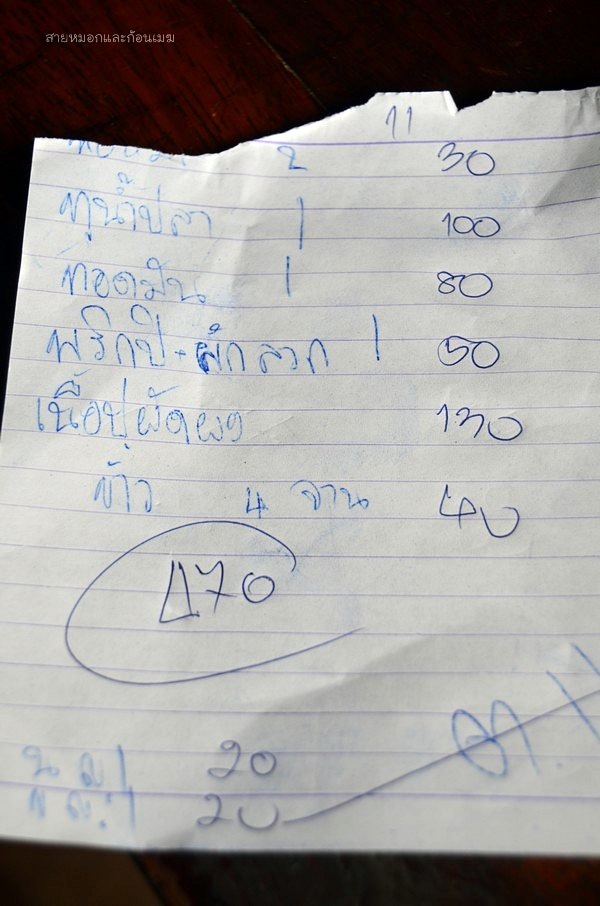 สายหมอกและก้อนเมฆ
11
2 30
ทูน้ำปลา 1 100
ทอดมัน 1 80
พริกปี - ผักลวก 1 50
เนื้อปูผัดผง 130
ข้าว 4 จาน 40
470
น ญ 1 20
20